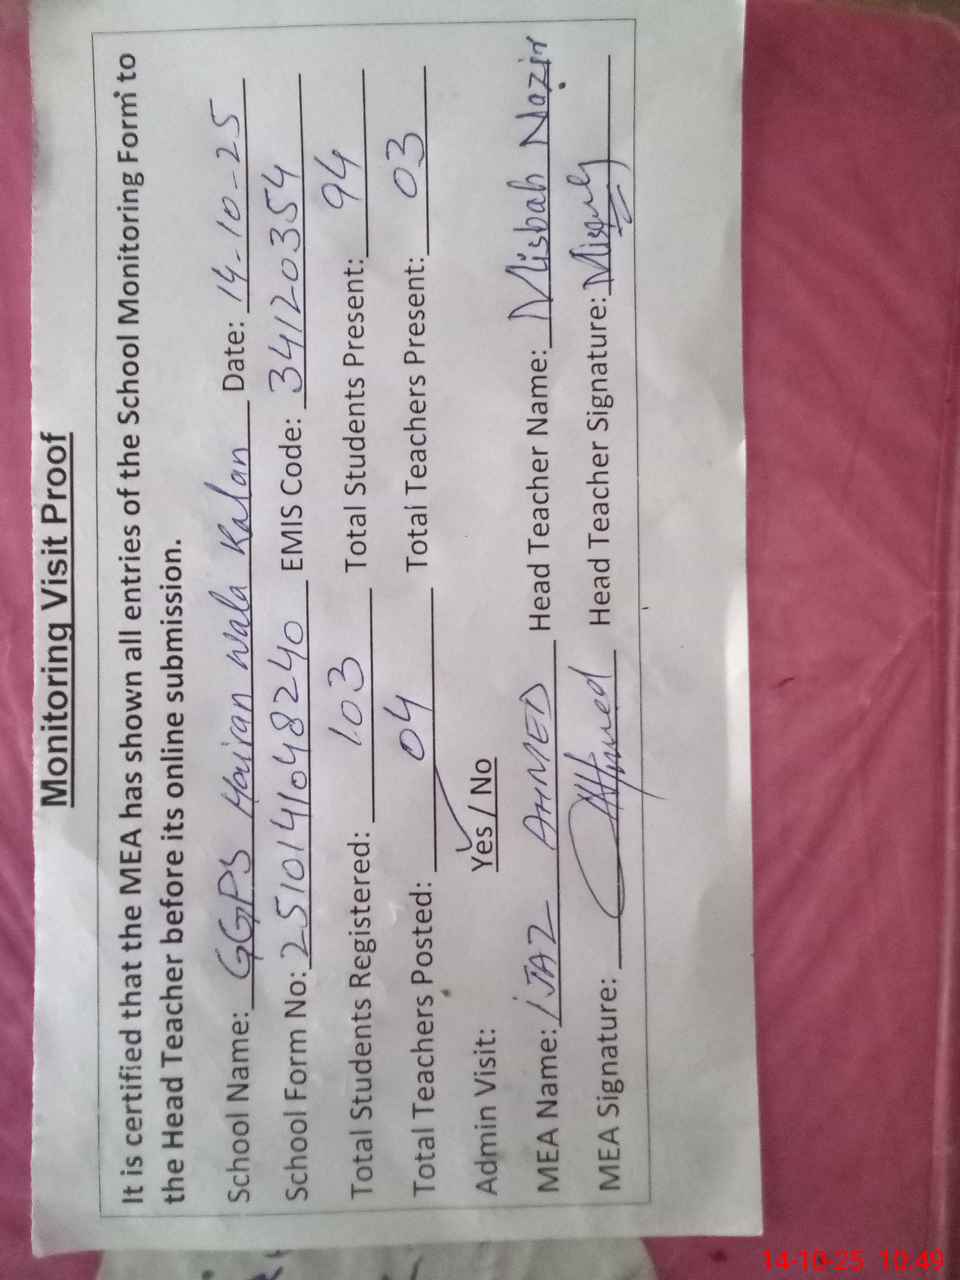 Monitoring Visit Proof
It is certified that the MEA has shown all entries of the School Monitoring Form to
the Head Teacher before its online submission.
School Name: GGPS Hairan wala Kalan Date: 14-10-25
School Form No: 2510141048240 EMIS Code: 34120354
Total Students Registered: 103 Total Students Present: 94
Total Teachers Posted: 04 Total Teachers Present: 03
Admin Visit: Yes / No
MEA Name: IJAZ AHMED Head Teacher Name: Misbah Nazir
MEA Signature: Ahmed Head Teacher Signature:
14-10-25 10:49